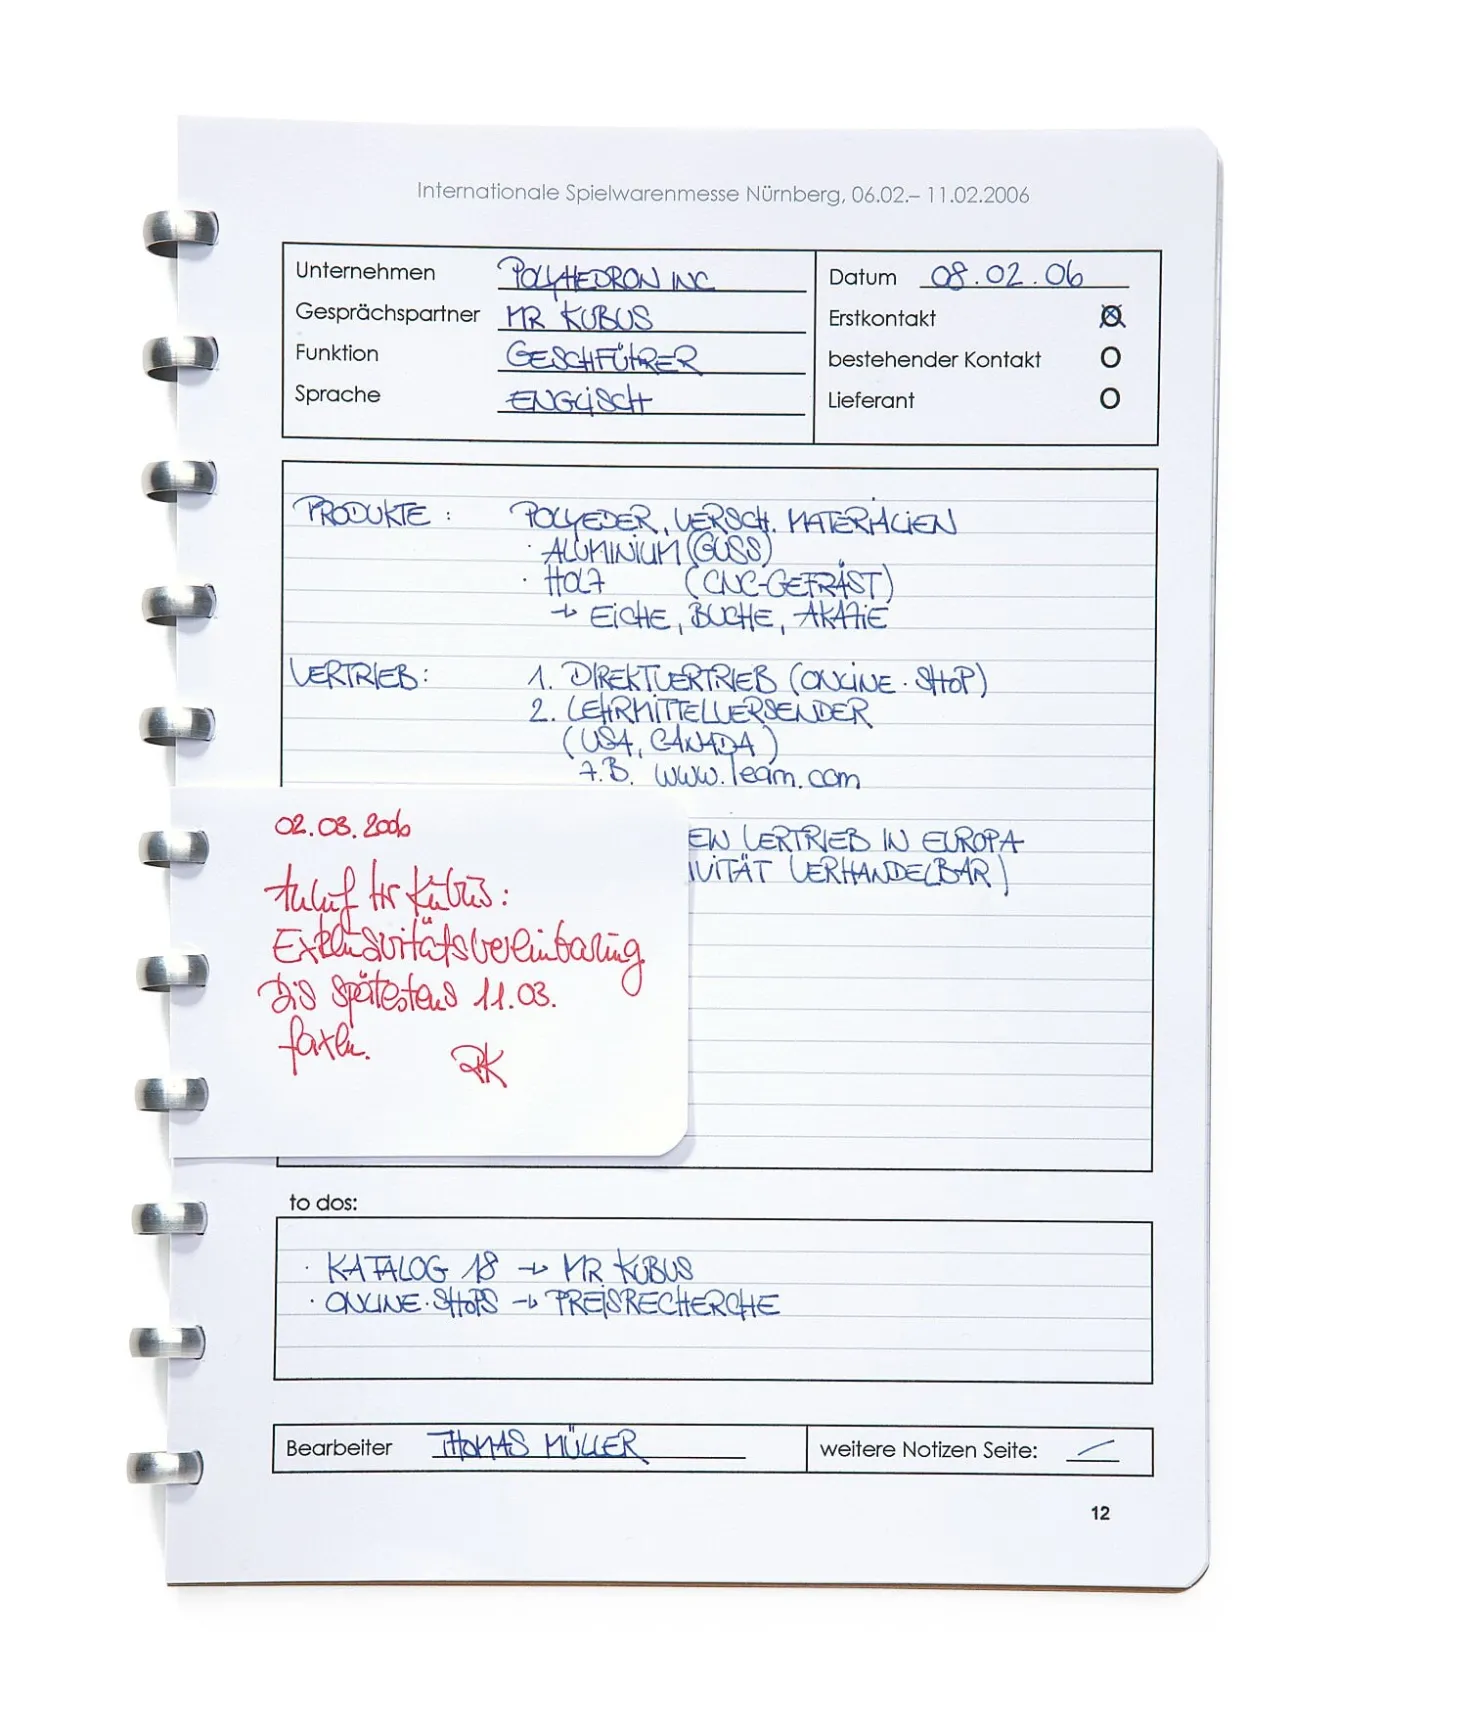 Internationale Spielwarenmesse Nürnberg, 06.02.– 11.02.2006
Unternehmen POLYHEDRON INC
Gesprächspartner MR KUBUS
Funktion GESCHFÜHRER
Sprache ENGLISCH
Datum 08.02.06
Erstkontakt
bestehender Kontakt
Lieferant
PRODUKTE : POLYEDER, VERSCH. MATERIALIEN
· ALUMINIUM (GUSS)
· HOLZ (CNC-GEFRÄST)
→ EICHE, BUCHE, AKAZIE
VERTRIEB: 1. DIREKTVERTRIEB (ONLINE-SHOP)
2. LEHRMITTELVERSENDER
(USA, CANADA)
Z.B. www.learn.com
EIN VERTRIEB IN EUROPA
IVITÄT VERHANDELBAR)
02.03.2006
Anruf Hr Kubus:
Exklusivitätsvereinbarung
bis spätestens 11.03.
faxen. RK
to dos:
· KATALOG 18 → MR KUBUS
· ONLINE-SHOPS → PREISRECHERCHE
Bearbeiter THOMAS MÜLLER
weitere Notizen Seite:
12